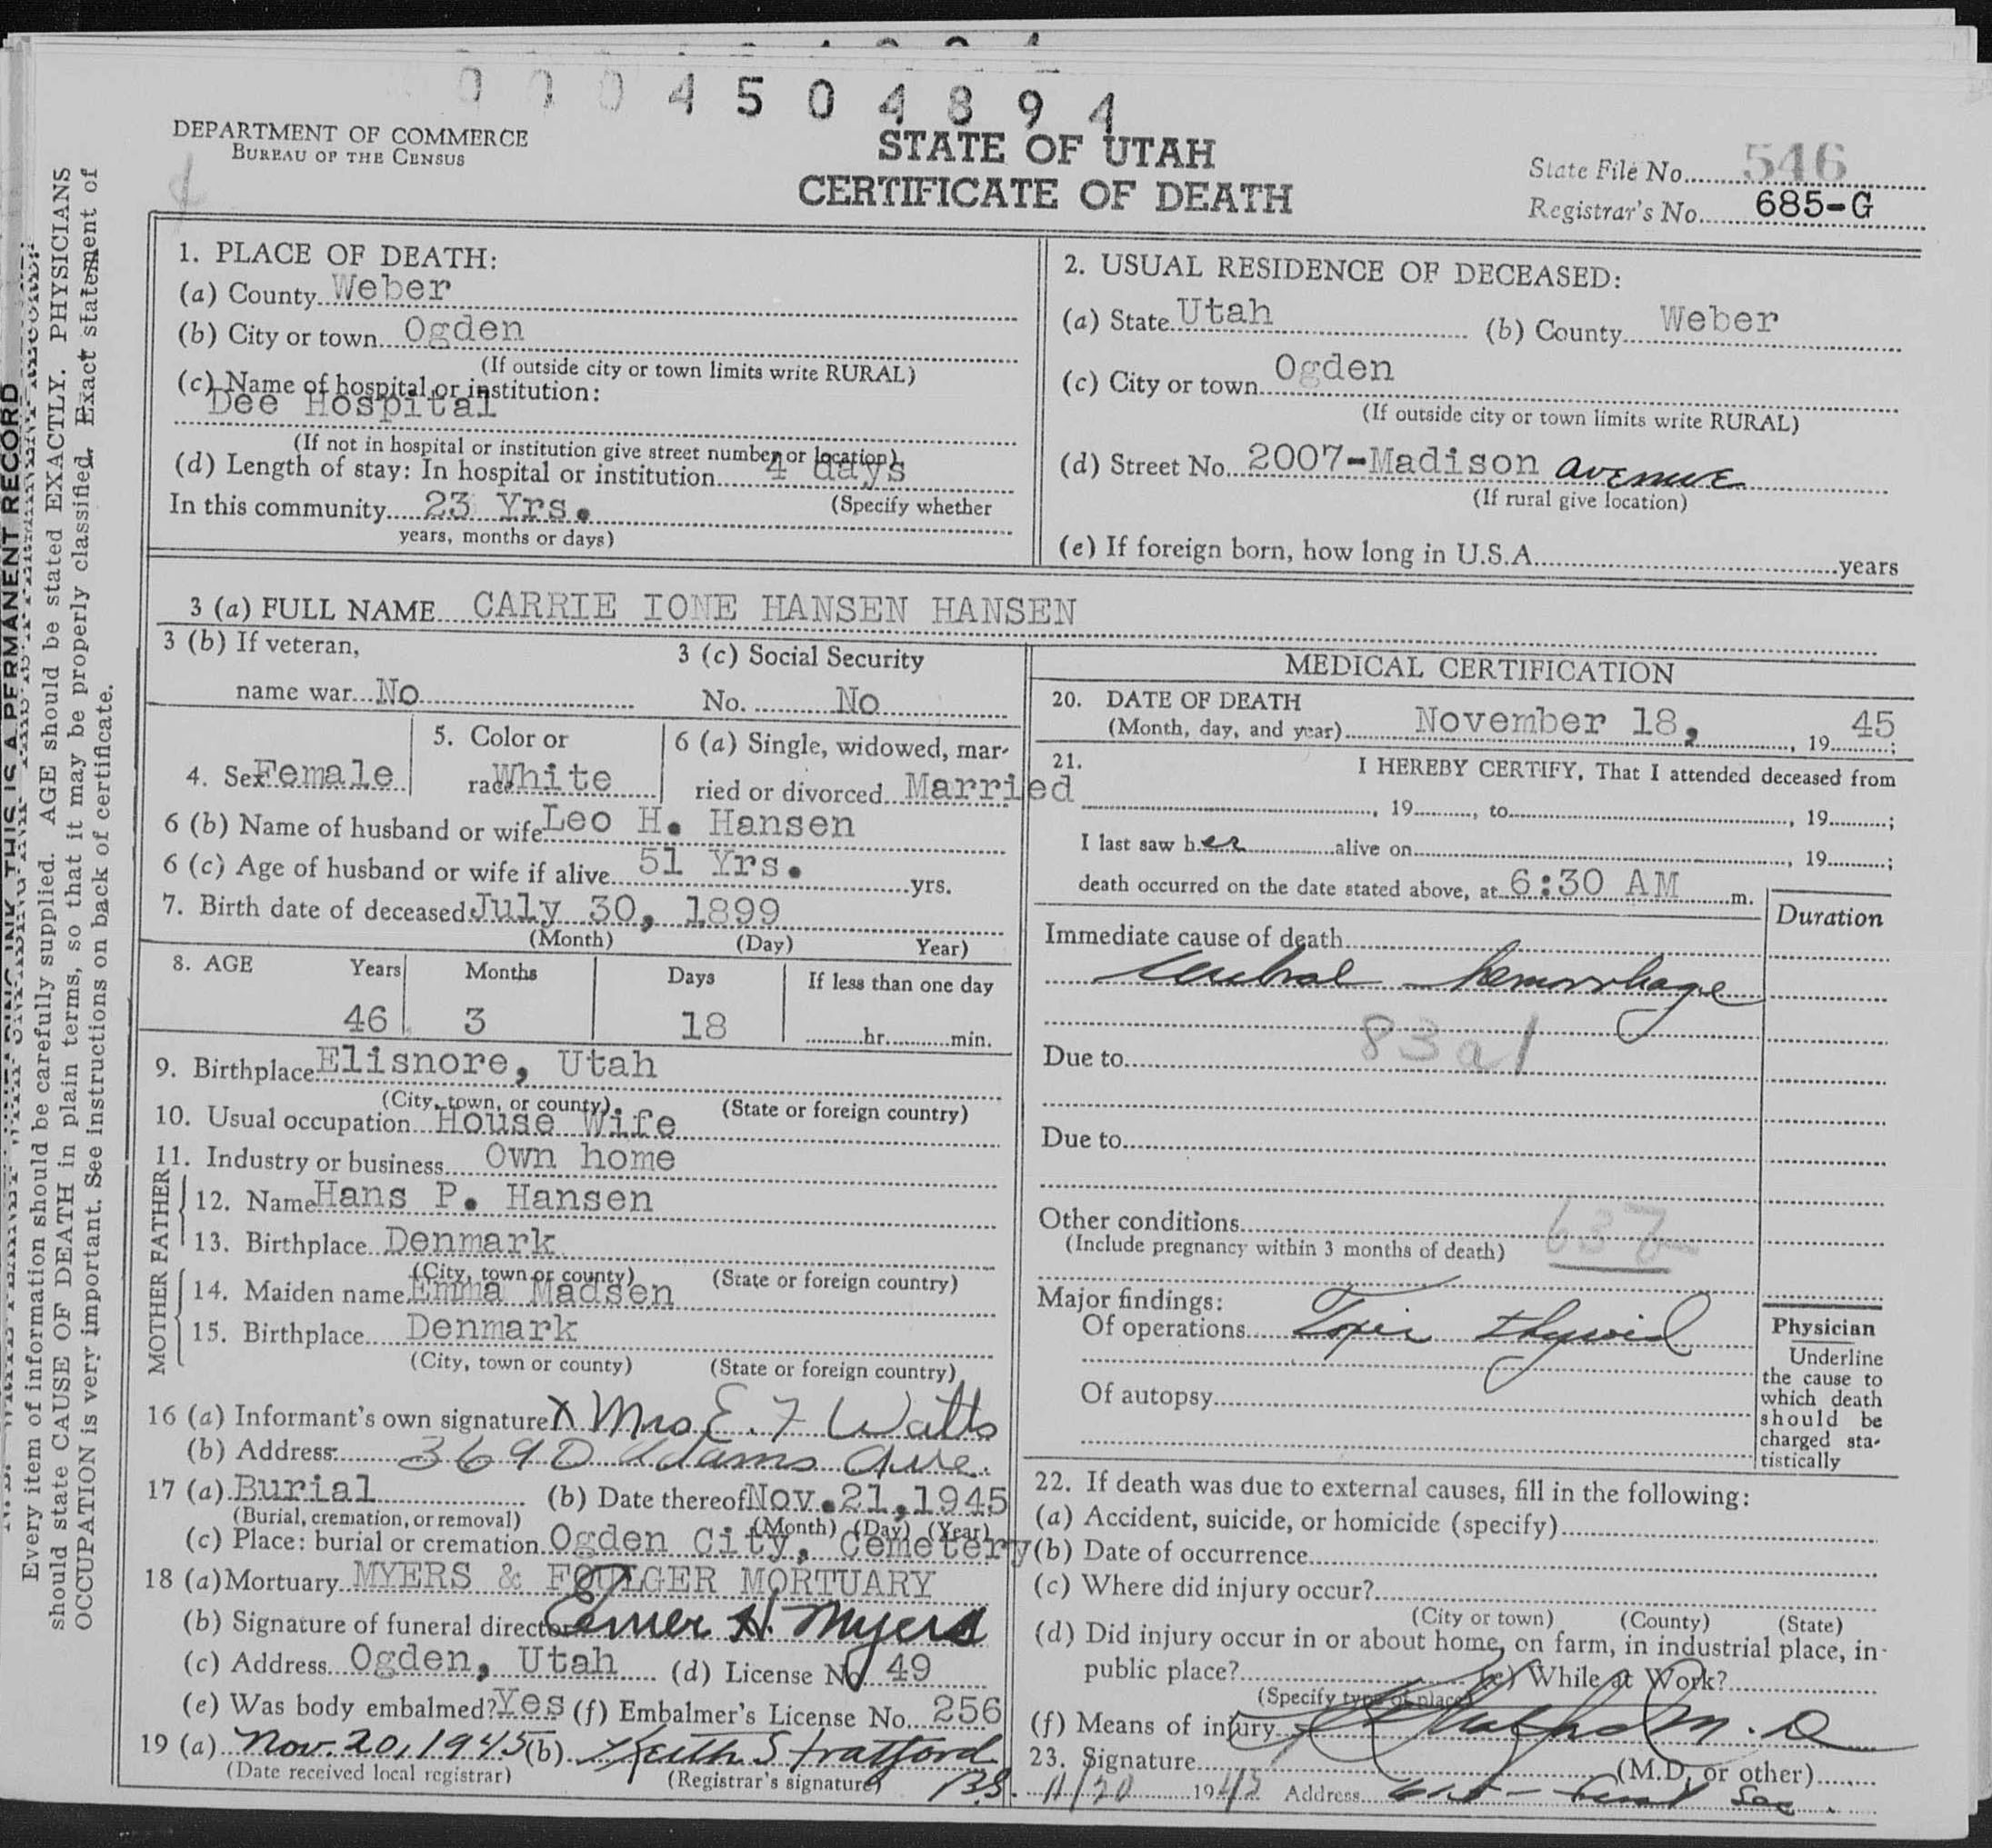 4504894
DEPARTMENT OF COMMERCE
BUREAU OF THE CENSUS
STATE OF UTAH
CERTIFICATE OF DEATH
State File No. 546
Registrar's No. 685-G
1. PLACE OF DEATH:
(a) County Weber
(b) City or town Ogden
(If outside city or town limits write RURAL)
(c) Name of hospital or institution:
Dee Hospital
(If not in hospital or institution give street number or location)
(d) Length of stay: In hospital or institution 4 days
In this community 23 Yrs. (Specify whether
years, months or days)
2. USUAL RESIDENCE OF DECEASED:
(a) State Utah (b) County Weber
(c) City or town Ogden
(If outside city or town limits write RURAL)
(d) Street No. 2007-Madison avenue
(If rural give location)
(e) If foreign born, how long in U.S.A. years
3 (a) FULL NAME CARRIE IONE HANSEN HANSEN
3 (b) If veteran,
name war No
3 (c) Social Security
No. No
4. Sex Female
5. Color or
race White
6 (a) Single, widowed, mar-
ried or divorced Married
6 (b) Name of husband or wife Leo H. Hansen
6 (c) Age of husband or wife if alive 51 Yrs. yrs.
7. Birth date of deceased July 30, 1899
(Month) (Day) Year)
8. AGE Years Months Days If less than one day
46 3 18 hr. min.
9. Birthplace Elisnore, Utah
(City, town, or county) (State or foreign country)
10. Usual occupation House Wife
11. Industry or business Own home
FATHER
12. Name Hans P. Hansen
13. Birthplace Denmark
(City, town or county) (State or foreign country)
MOTHER
14. Maiden name Emma Madsen
15. Birthplace Denmark
(City, town or county) (State or foreign country)
16 (a) Informant's own signature X Mrs E. F Watts
(b) Address: 3690 Adams Ave.
17 (a) Burial (b) Date thereof Nov. 21, 1945
(Burial, cremation, or removal) (Month) (Day) (Year)
(c) Place: burial or cremation Ogden City, Cemetery
18 (a) Mortuary MYERS & FOULGER MORTUARY
(b) Signature of funeral director Elmer H. Myers
(c) Address Ogden, Utah (d) License No. 49
(e) Was body embalmed? Yes (f) Embalmer's License No. 256
19 (a) Nov. 20, 1945 (b) Keith Stratford
(Date received local registrar) (Registrar's signature) B.S.
MEDICAL CERTIFICATION
20. DATE OF DEATH
(Month, day, and year) November 18, , 1945;
21. I HEREBY CERTIFY, That I attended deceased from
, 19 , to , 19 ;
I last saw her alive on , 19 ;
death occurred on the date stated above, at 6:30 AM m.
Duration
Immediate cause of death
Cerebral hemorrhage
83a1
Due to
Due to
Other conditions 637
(Include pregnancy within 3 months of death)
Major findings:
Of operations Toxic thyroid
Of autopsy
Physician
Underline
the cause to
which death
should be
charged sta-
tistically
22. If death was due to external causes, fill in the following:
(a) Accident, suicide, or homicide (specify)
(b) Date of occurrence
(c) Where did injury occur?
(City or town) (County) (State)
(d) Did injury occur in or about home, on farm, in industrial place, in
public place? (e) While at Work?
(Specify type of place)
(f) Means of injury
23. Signature M.D (M.D. or other)
11/20 1945 Address
THIS IS A PERMANENT RECORD
Every item of information should be carefully supplied. AGE should be stated EXACTLY. PHYSICIANS
should state CAUSE OF DEATH in plain terms, so that it may be properly classified. Exact statement of
OCCUPATION is very important. See instructions on back of certificate.